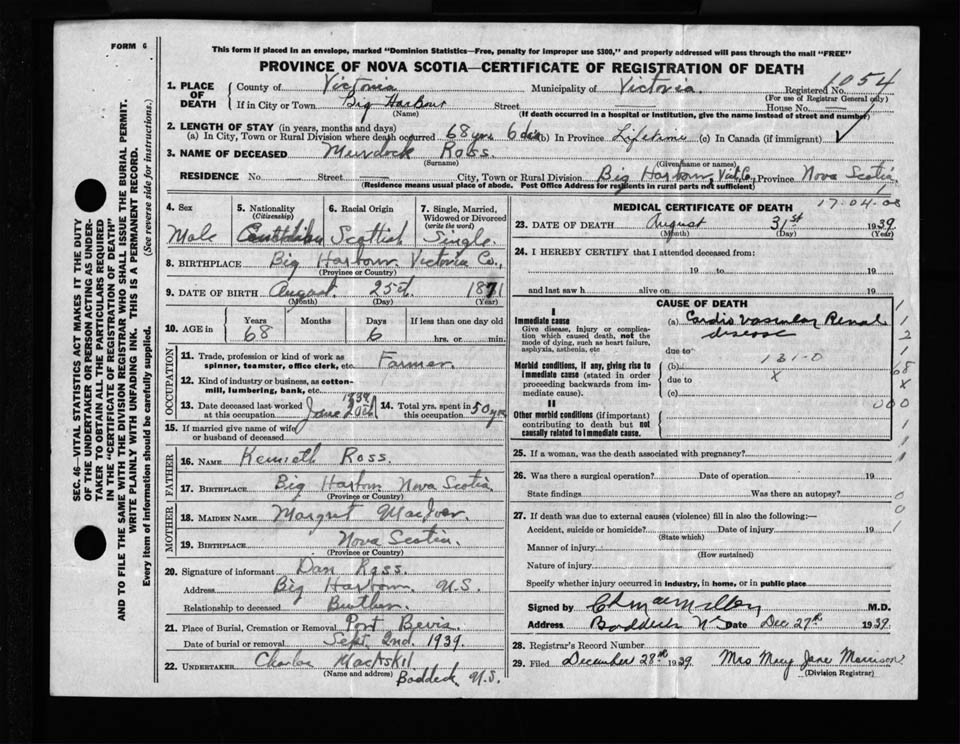 FORM 6
This form if placed in an envelope, marked "Dominion Statistics—Free, penalty for improper use $300," and properly addressed will pass through the mail "FREE"
PROVINCE OF NOVA SCOTIA—CERTIFICATE OF REGISTRATION OF DEATH
1054
1. PLACE OF DEATH
County of Victoria Municipality of Victoria. Registered No.
(For use of Registrar General only)
If in City or Town Big Harbour Street House No.
(Name) (If death occurred in a hospital or institution, give the name instead of street and number)
2. LENGTH OF STAY (in years, months and days)
(a) In City, Town or Rural Division where death occurred 68 yrs 6 ds (b) In Province Lifetime (c) In Canada (if immigrant)
3. NAME OF DECEASED Murdock Ross.
(Surname) (Given name or names)
RESIDENCE No. Street City, Town or Rural Division Big Harbour, Vict Co, Province Nova Scotia
(Residence means usual place of abode. Post Office Address for residents in rural parts not sufficient)
4. Sex 5. Nationality (Citizenship) 6. Racial Origin 7. Single, Married, Widowed or Divorced (write the word)
Male Scottish Single.
8. BIRTHPLACE Big Harbour Victoria Co.,
(Province or Country)
9. DATE OF BIRTH August 25th 1871
(Month) (Day) (Year)
10. AGE in Years Months Days If less than one day old
68 6 hrs. or min.
OCCUPATION
11. Trade, profession or kind of work as spinner, teamster, office clerk, etc. Farmer.
12. Kind of industry or business, as cotton-mill, lumbering, bank, etc.
13. Date deceased last worked at this occupation June 20th 1939
14. Total yrs. spent in this occupation 50 yrs
15. If married give name of wife or husband of deceased
FATHER
16. NAME Kenneth Ross.
17. BIRTHPLACE Big Harbour Nova Scotia
(Province or Country)
MOTHER
18. MAIDEN NAME Margret MacIver.
19. BIRTHPLACE Nova Scotia.
(Province or Country)
20. Signature of informant Dan Ross.
Address Big Harbour N.S.
Relationship to deceased Brother.
21. Place of Burial, Cremation or Removal Port Bevis
Date of burial or removal Sept. 2nd. 1939.
22. UNDERTAKER Charles MacAskil
(Name and address) Baddeck N.S.
MEDICAL CERTIFICATE OF DEATH 17-04-08
23. DATE OF DEATH August 31st 1939
(Month) (Day) (Year)
24. I HEREBY CERTIFY that I attended deceased from:
19 to 19
and last saw h alive on 19
CAUSE OF DEATH
I
Immediate cause (a) Cardio Vascular Renal disease
Give disease, injury or complication which caused death, not the mode of dying, such as heart failure, asphyxia, asthenia, etc
due to
131-0
Morbid conditions, if any, giving rise to immediate cause (stated in order proceeding backwards from immediate cause).
(b)
due to x
(c)
II
Other morbid conditions (if important) contributing to death but not causally related to immediate cause.
25. If a woman, was the death associated with pregnancy?
26. Was there a surgical operation? Date of operation 19
State findings Was there an autopsy?
27. If death was due to external causes (violence) fill in also the following:—
Accident, suicide or homicide? Date of injury 19
(State which)
Manner of injury
(How sustained)
Nature of injury
Specify whether injury occurred in industry, in home, or in public place
Signed by M.D.
Address Baddeck NS Date Dec 27th 1939.
28. Registrar's Record Number
29. Filed December 28th 1939. Mrs Mary Jane Morrison
(Division Registrar)
SEC. 46—VITAL STATISTICS ACT MAKES IT THE DUTY
OF THE UNDERTAKER OR PERSON ACTING AS UNDER-
TAKER TO OBTAIN ALL THE PARTICULARS REQUIRED
IN THE "CERTIFICATE OF REGISTRATION OF DEATH"
AND TO FILE THE SAME WITH THE DIVISION REGISTRAR WHO SHALL ISSUE THE BURIAL PERMIT.
WRITE PLAINLY WITH UNFADING INK. THIS IS A PERMANENT RECORD.
Every item of information should be carefully supplied. (See reverse side for instructions.)